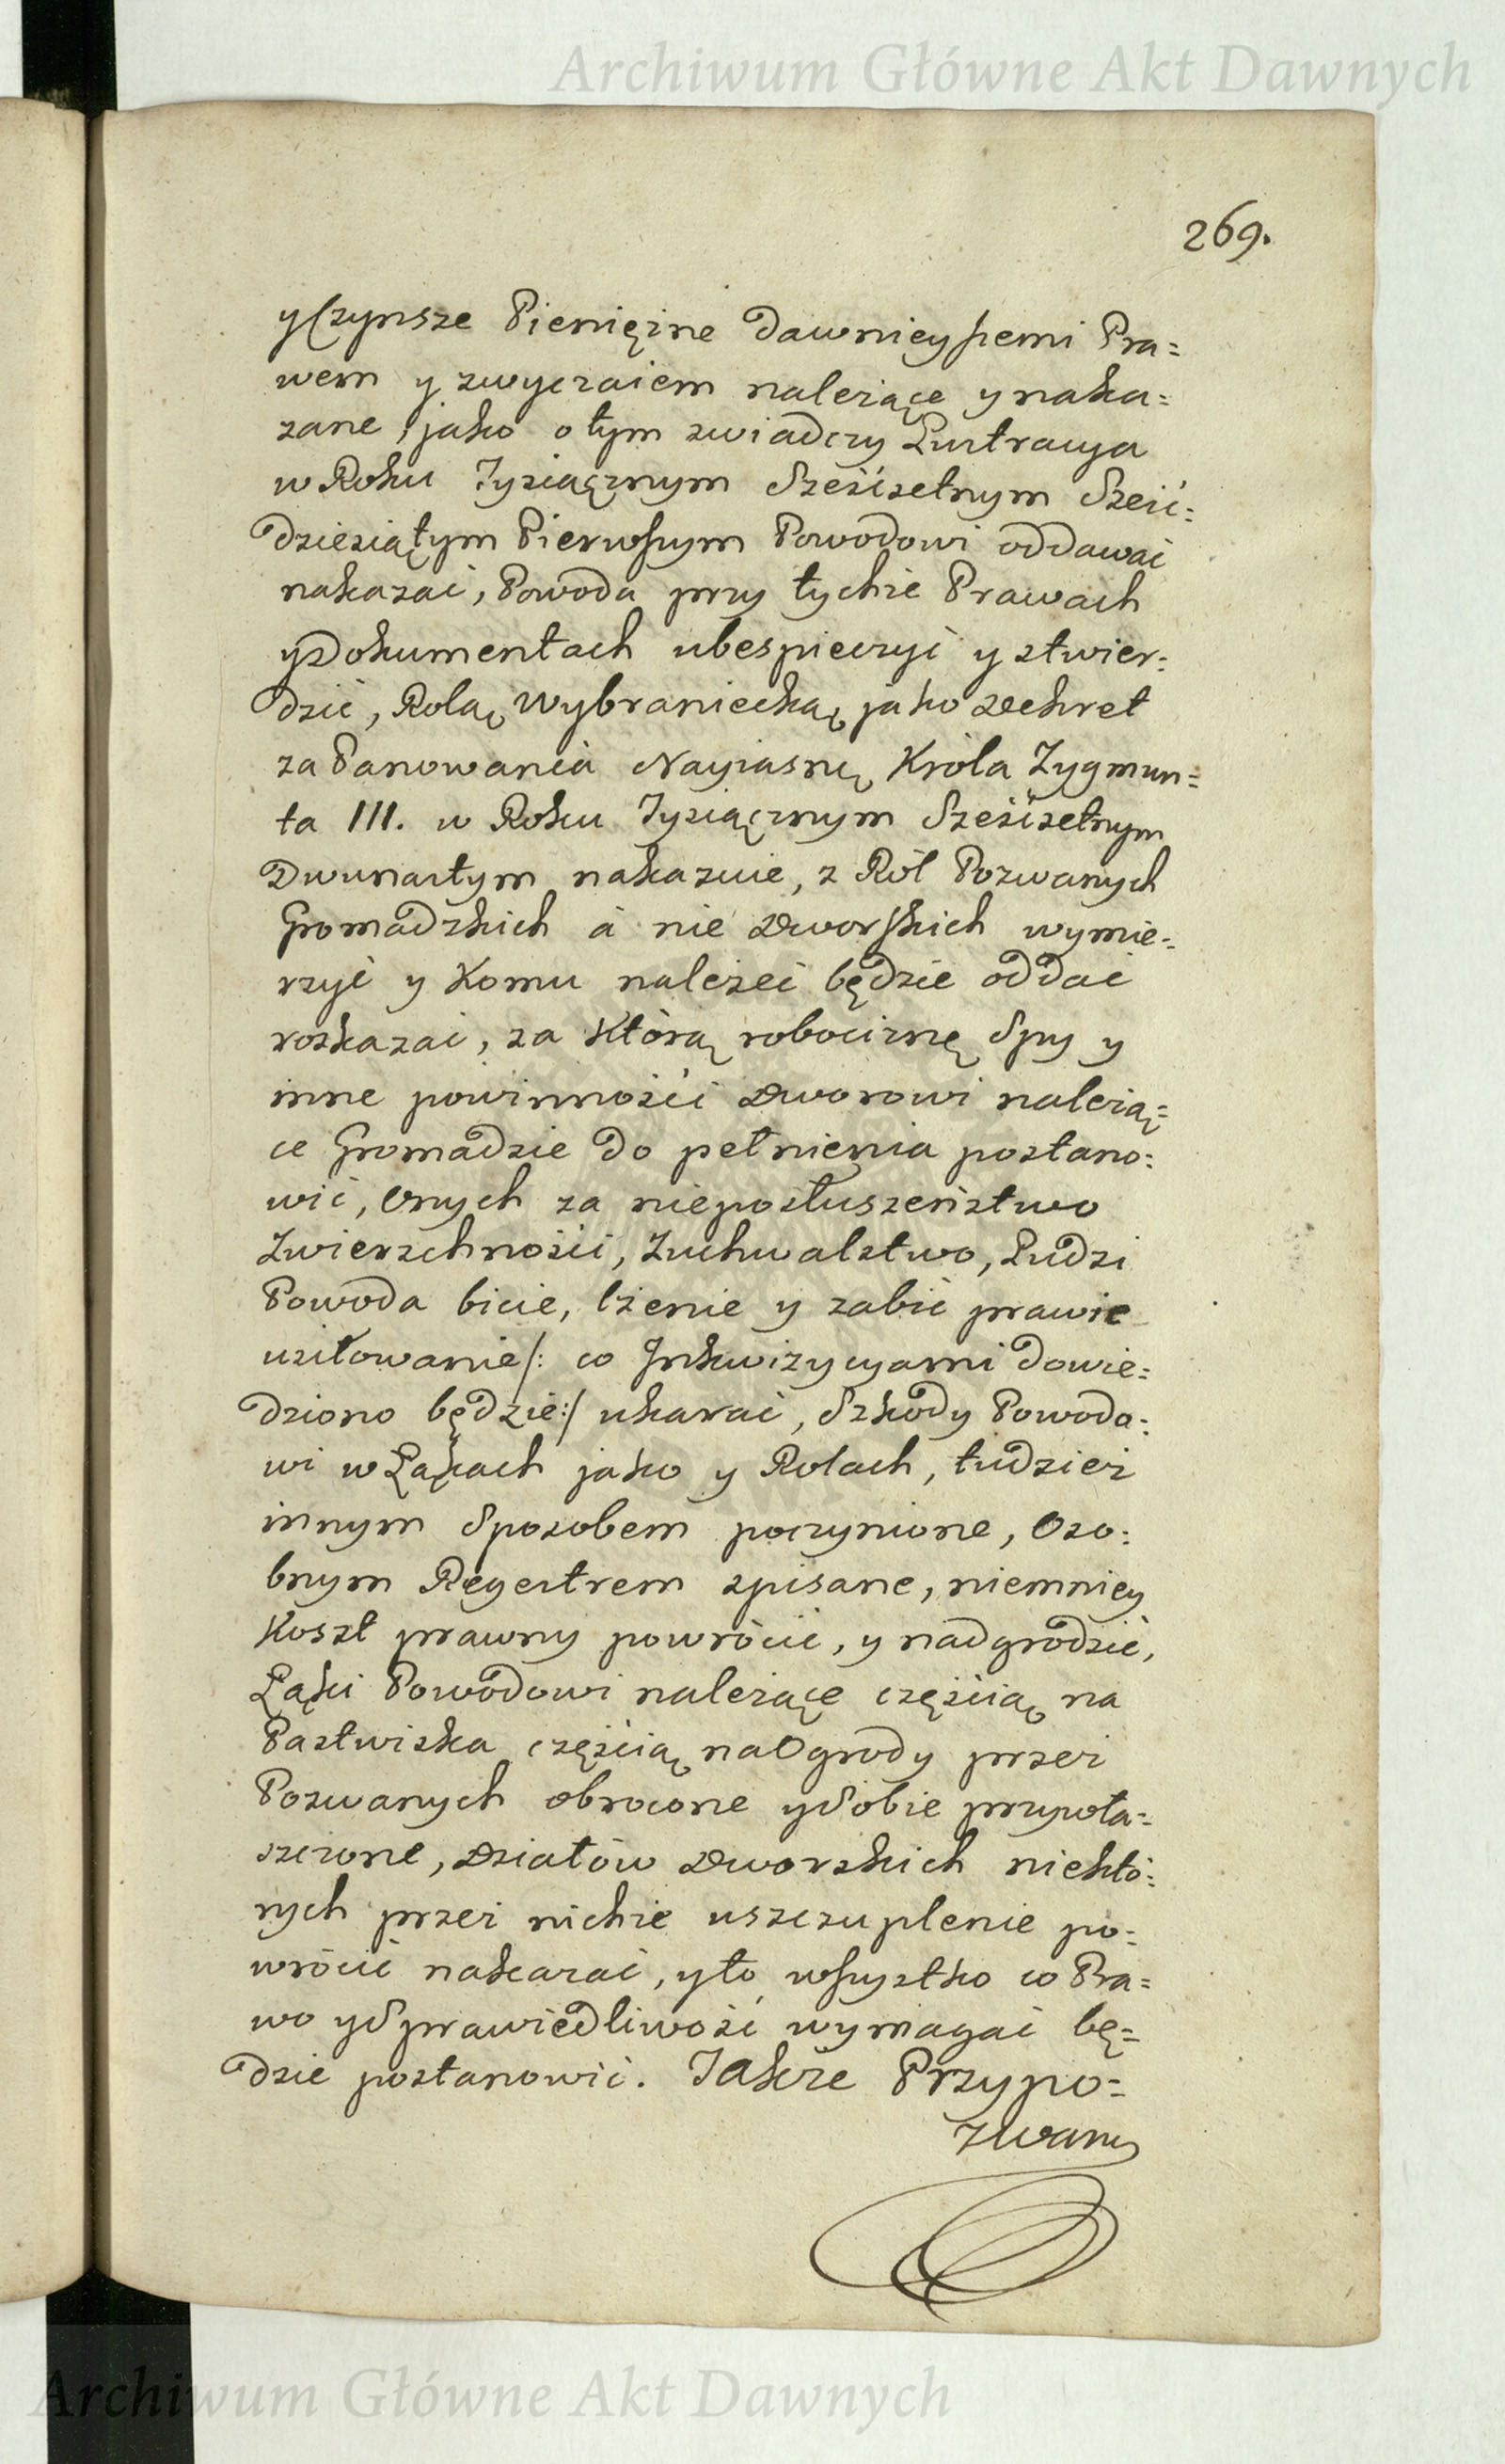 Archiwum Główne Akt Dawnych
269.
y Czynsze Pieniężne dawnieyszemi Pra=
wem y zwyczaiem należące y naka=
zane, jako o tym zwiadczy Lustracya
w Roku Tysiącznym Sześćsetnym Sześć=
dziesiątym Pierwszym Powodowi oddawać
nakazać, Powoda przy tychże Prawach
y Dokumentach ubespieczyć y stwier=
dzić, Rolą Wybraniecką jako Dekret
za Panowania Nayiasnię Króla Zygmun=
ta III. w Roku Tysiącznym Sześćsetnym
Dwunastym nakazuie, z Ról Pozwanych
Gromadzkich á nie Dworskich wymie=
rzyć y Komu należeć będzie oddać
roskazać, za którą robociznę Spy y
inne powinności Dworowi należą=
ce Gromadzie do pełnienia postano=
wić, Onych za nieposłuszeństwo
Zwierzchności, Zuchwalstwo, Ludzi
Powoda bicie, lżenie y zabić prawie
usiłowanie /: co Inkwizycyami dowie=
dziono będzie :/ ukarać, Szkody Powodo=
wi w Łąkach jako y Rolach, tudzież
innym Sposobem poczynione, Oso=
bnym Regestrem spisane, niemniey
Koszt prawny powrócić, y nadgrodzić,
Łąki Powodowi należące częścią na
Pastwiska częścią na Ogrody przez
Pozwanych obrocone y Sobie przywła=
szczone, Działów Dworskich niektó=
rych przez nichże uszczuplenie po=
wrócić nakazać, y to wszystko co Pra=
wo y Sprawiedliwość wymagać bę=
dzie postanowić. Jakże Przypo=
zwany
Archiwum Główne Akt Dawnych